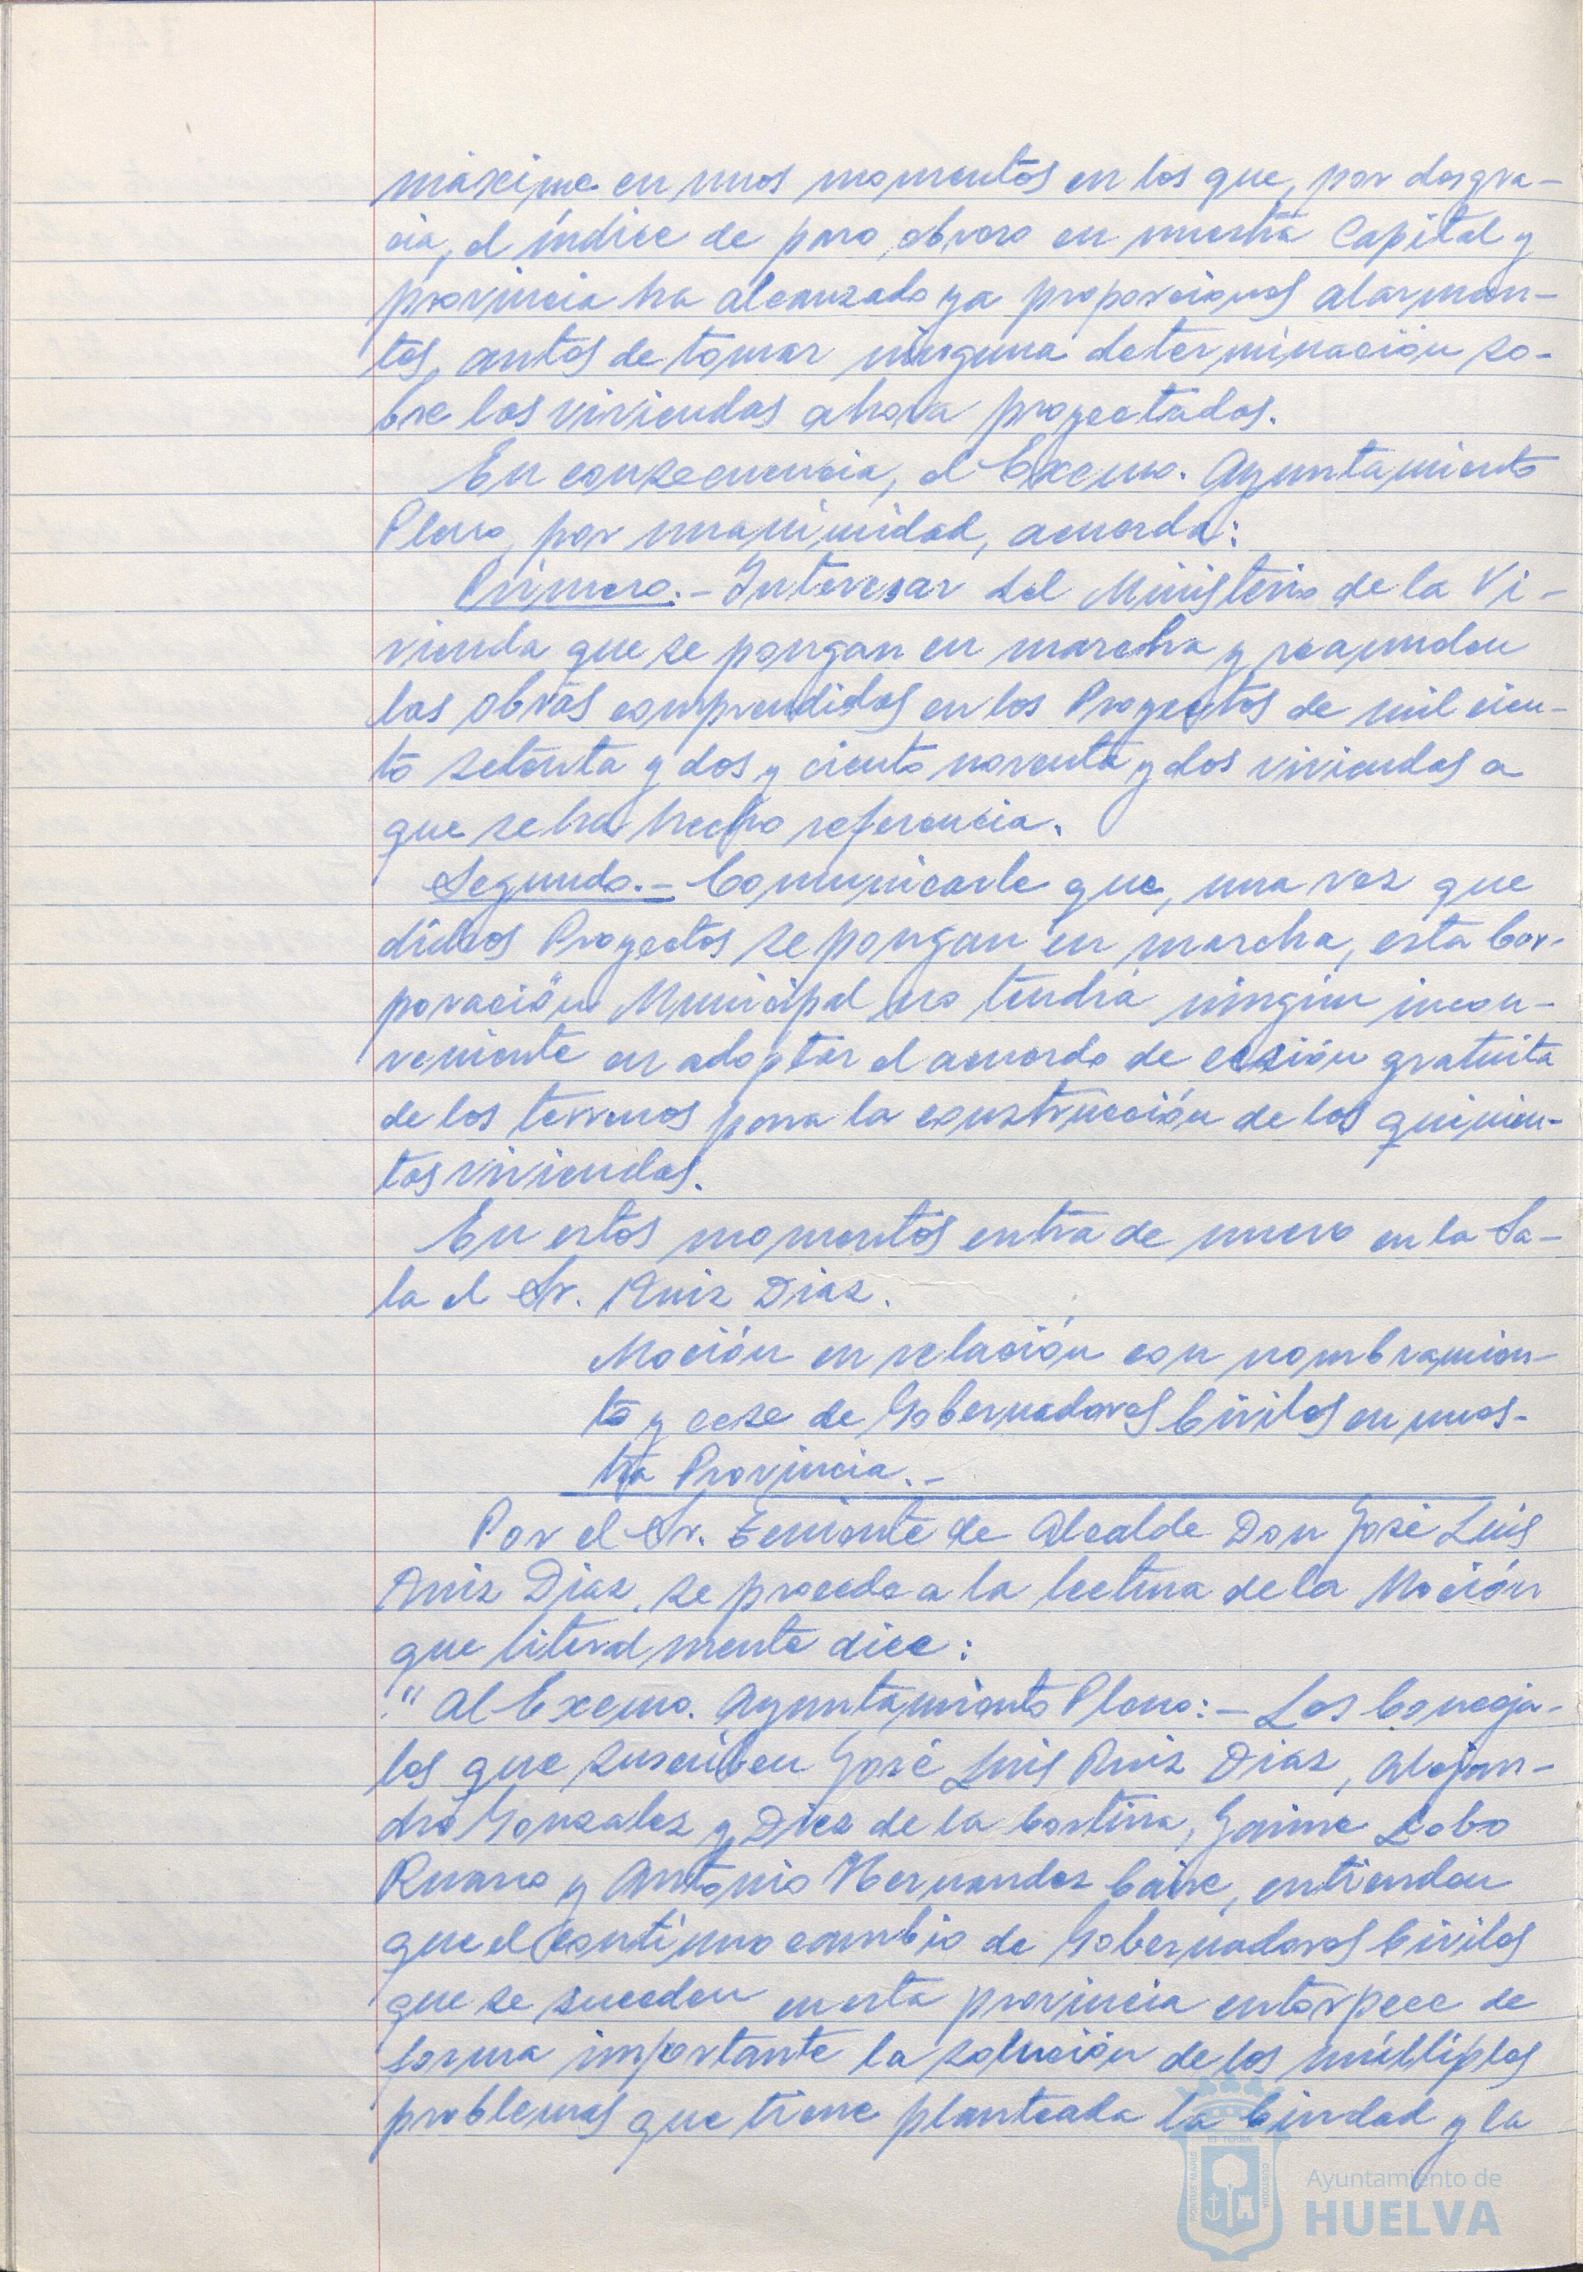 máxime en unos momentos en los que, por desgra-
cia, el índice de paro obrero en nuestra Capital y
provincia ha alcanzado ya proporciones alarman-
tes, antes de tomar ninguna determinación so-
bre las viviendas ahora proyectadas.
En consecuencia, el Excmo. Ayuntamiento
Pleno, por unanimidad, acuerda:
Primero.- Interesar del Ministerio de la Vi-
vienda que se pongan en marcha y reanuden
las obras comprendidas en los Proyectos de mil cien-
to setenta y dos y ciento noventa y dos viviendas a
que se ha hecho referencia.
Segundo.- Comunicarle que, una vez que
dichos Proyectos se pongan en marcha, esta Cor-
poración Municipal no tendrá ningún incon-
veniente en adoptar el acuerdo de cesión gratuita
de los terrenos para la construcción de las quinien-
tas viviendas.
En estos momentos entra de nuevo en la Sa-
la el Sr. Ruiz Diaz.
Moción en relación con nombramien-
to y cese de Gobernadores Civiles en nues-
tra Provincia.-
Por el Sr. Teniente de Alcalde Don José Luis
Ruiz Diaz, se procede a la lectura de la Moción
que literalmente dice:
"Al Excmo. Ayuntamiento Pleno:- Los Conceja-
les que suscriben José Luis Ruiz Diaz, Alejan-
dro Gonzalez y Diez de la Cortina, Jaime Lobo
Ruano y Antonio Hernandez Caire, entienden
que el continuo cambio de Gobernadores Civiles
que se suceden en esta provincia entorpece de
forma importante la solución de los múltiples
problemas que tiene planteada la Ciudad y la
PORTUS MARIS ET TERRAE CUSTODIA
Ayuntamiento de
HUELVA